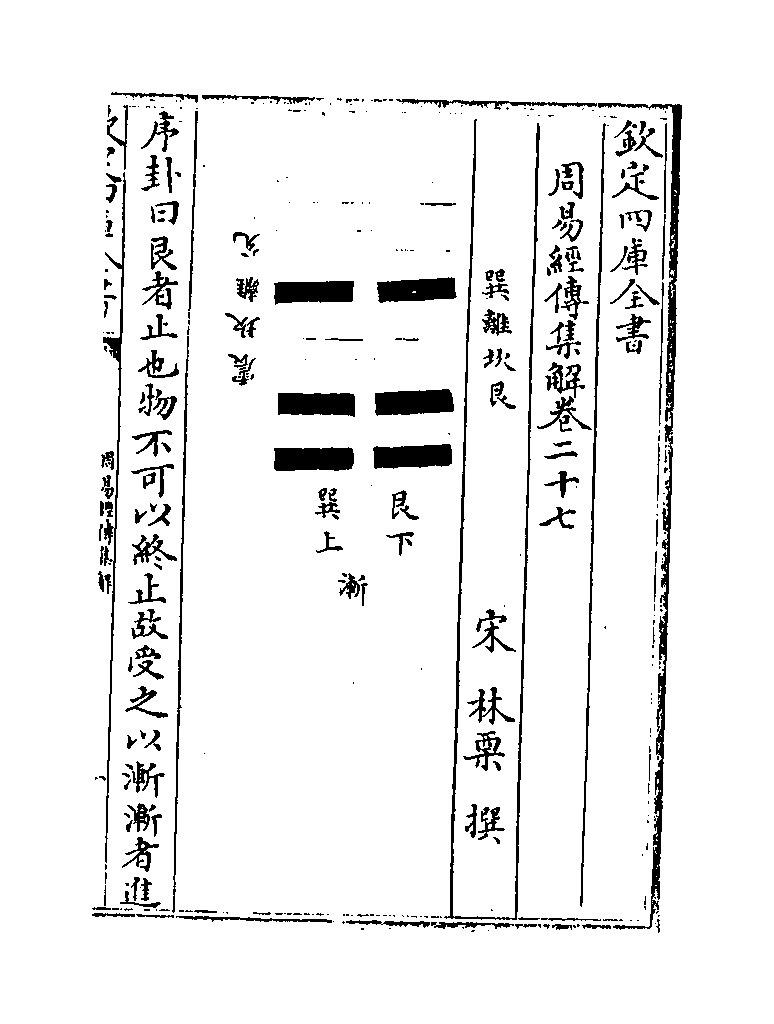 欽定四庫全書
周易經傳集解卷二十七
宋 林栗 撰
巽離坎艮
艮下
巽上
漸
兌離坎震
序卦曰艮者止也物不可以終止故受之以漸漸者進
周易經傳集解